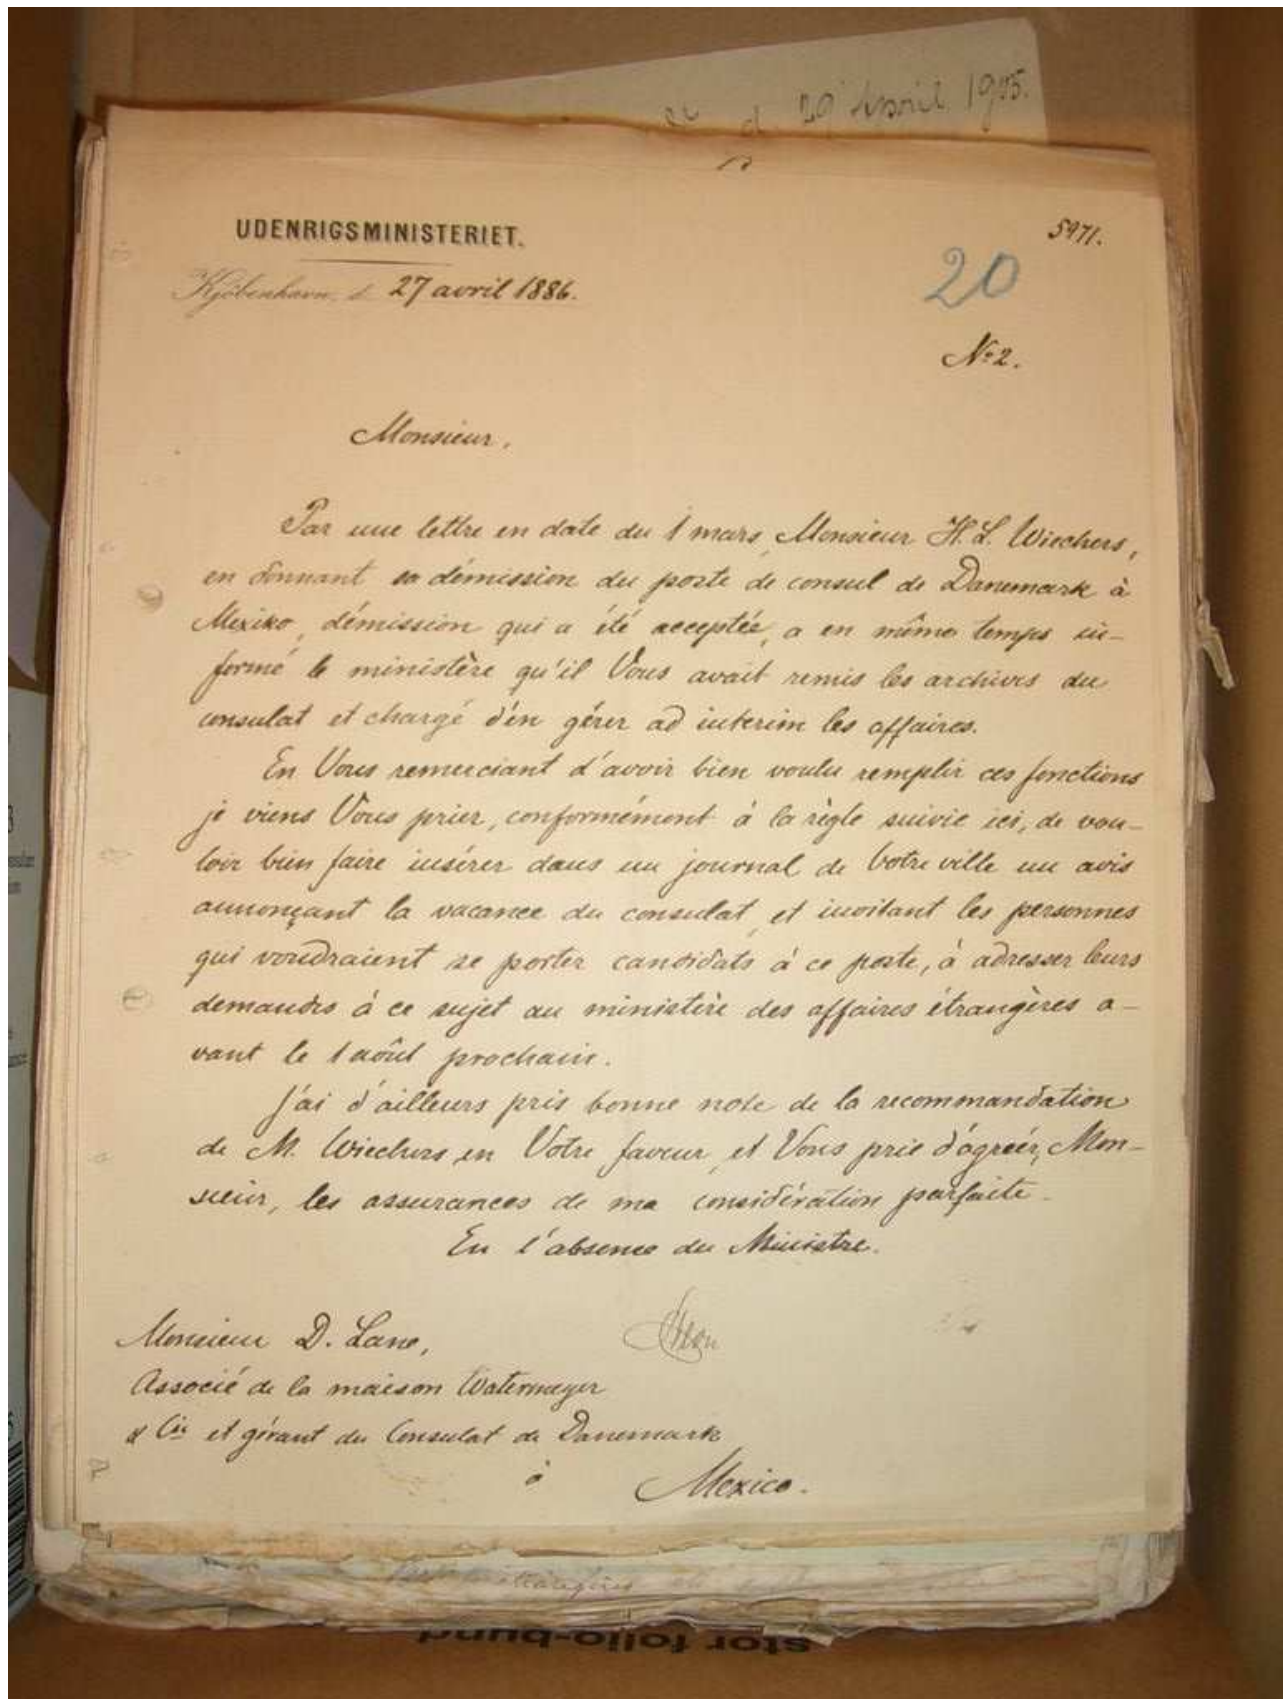 d. 29 April 1905.
UDENRIGSMINISTERIET.
5971.
Kjöbenhavn, d. 27 avril 1886.
20
No 2.
Monsieur,
Par une lettre en date du 1 mars, Monsieur H. L. Wiechers,
en donnant sa démission du poste de consul de Danemark à
Mexiko, démission qui a été acceptée, a en même temps in-
formé le ministère qu'il Vous avait remis les archives du
consulat et chargé d'en gérer ad interim les affaires.
En Vous remerciant d'avoir bien voulu remplir ces fonctions
je viens Vous prier, conformément à la règle suivie ici, de vou-
loir bien faire insérer dans un journal de Votre ville un avis
annonçant la vacance du consulat, et invitant les personnes
qui voudraient se porter candidats à ce poste, à adresser leurs
demandes à ce sujet au ministère des affaires étrangères a-
vant le 1 août prochain.
J'ai d'ailleurs pris bonne note de la recommandation
de M. Wiechers en Votre faveur, et Vous prie d'agréer, Mon-
sieur, les assurances de ma considération parfaite.
En l'absence du Ministre.
Monsieur D. Lane,
Associé de la maison Watermeyer
& Cie et gérant du Consulat de Danemark
à
Mexico.
étrangères
stor folio-bund